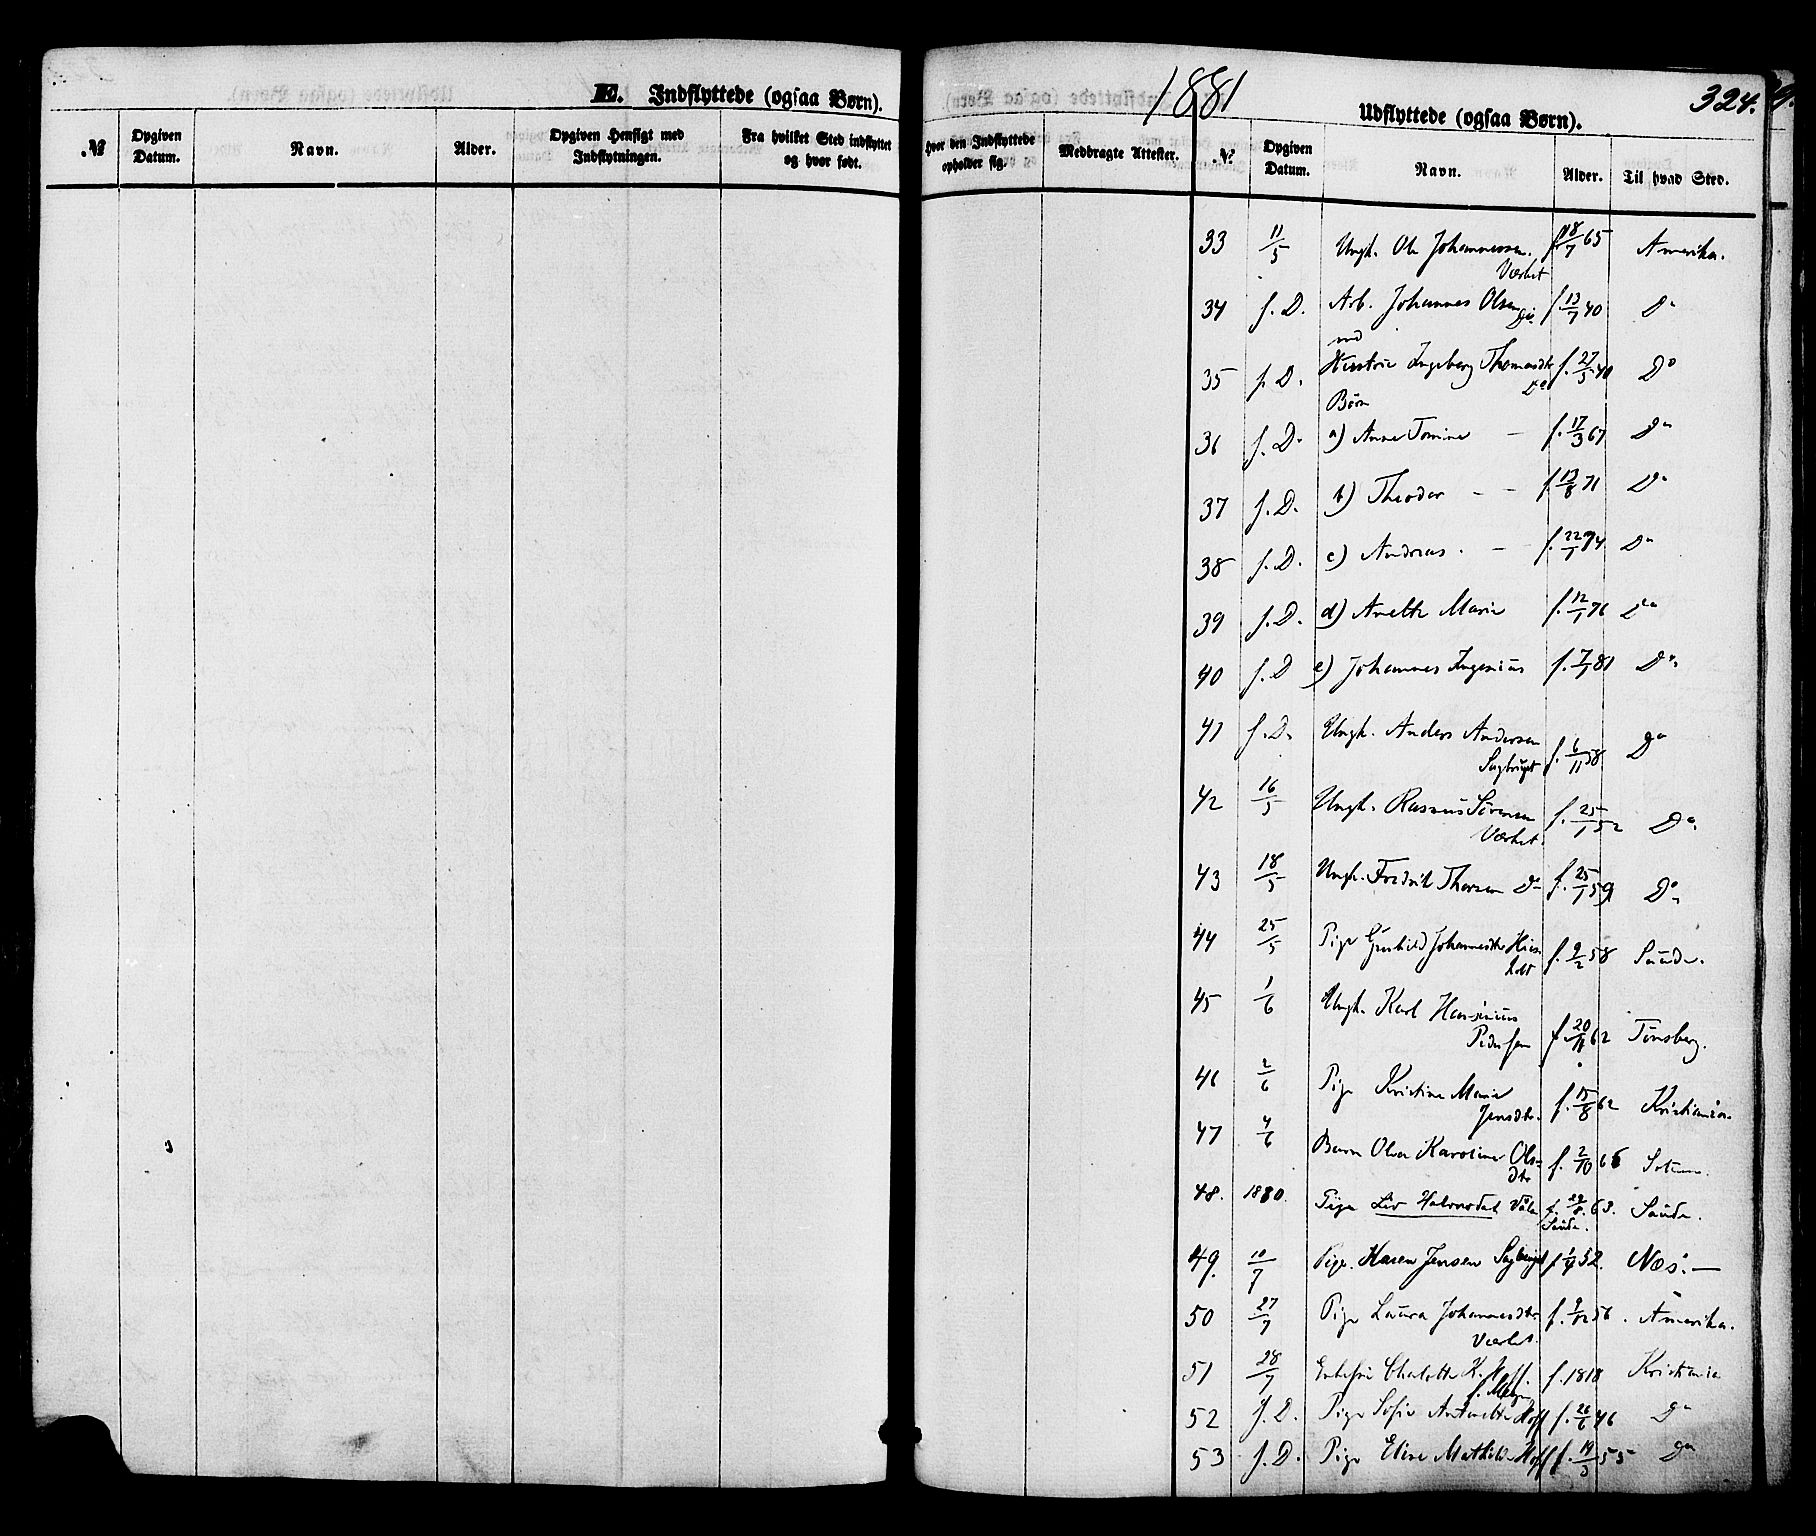 E. Indflyttede (ogsaa Børn).
№ Opgiven Datum. Navn. Alder. Opgiven Hensigt med Indflytningen. Fra hvilket Sted indflyttet og hvor født.
1881
324.
Udflyttede (ogsaa Børn).
Hvor den Indflyttede opholder sig. Medbragte Attester. № Opgiven Datum. Navn. Alder. Til hvad Sted.
33 11/5 Ungk. Ole Johannessen. f. 18/7 65 Amerika.
Værket
34 s. D. Arb. Johannes Olsen Do. f. 13/7 40 Do
med
35 s. D. Hustru Ingeborg Thomasdtr f. 27/5 40 Do
Do
Børn
36 s. D. a) Anne Tomine – f. 17/3 67 Do
37 s. D. b) Theodor – – f. 13/8 71 Do
38 s. D. c) Andreas. – f. 22/1 74 Do
39 s. D. d) Anette Marie f. 12/1 76 Do
40 s. D e) Johannes Ingenius f. 7/1 81 Do
41 s. D. Ungk. Anders Andersen
Sagbruget f. 6/11 58 Do
42 16/5 Ungk. Rasmus Sörensen f. 25/1 52 Do
Værket.
43 18/5 Ungk. Fredrik Thorsen Do f. 25/1 59 Do
44 25/5 Pige Gunhild Johannesdtr f. 9/2 58 Saude.
45 1/6 Ungk. Karl
Pedersen f. 20/11 62 Tönsberg.
46 2/6 Pige Kristine Marie
Jensdtr. f. 15/8 62 Kristiania.
47 4/6 Barn Olea Karoline Ols=
dtr f. 2/10 66
48. 1880. Pige Liv Halvorsdat f. 29/8. 63. Saude.
Saude.
49. 10/7 Pige. Karen Jensen Sagbruget f. 1/4 52. Næs. –
50 27/7 Pige Laura Johannesdtr f. 9/12 56. Amerika.
Værket.
51 28/7 Enkefru Charlotte K. Hoff. f. 1818 Kristiania
52 s. D. Pige Sofie Antonette Hoff f. 26/6 46 Do
53 s. D. Pige Elise Mathilde Hoff f. 19/3 55 Do